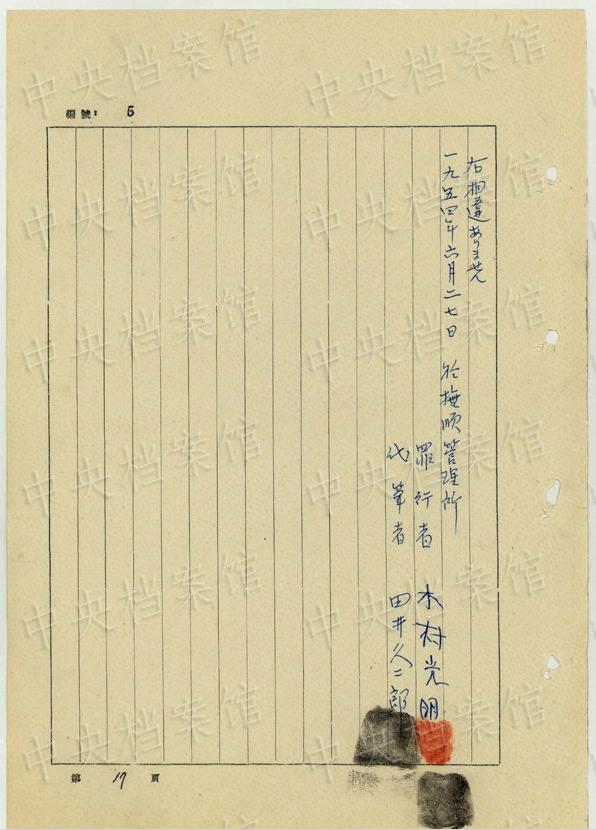 編號: 5
右相違ありません
一九五四年六月二七日 於撫順管理所
罪行者 木村光明
代筆者 田井久二郎
第 17 頁
中央档案馆